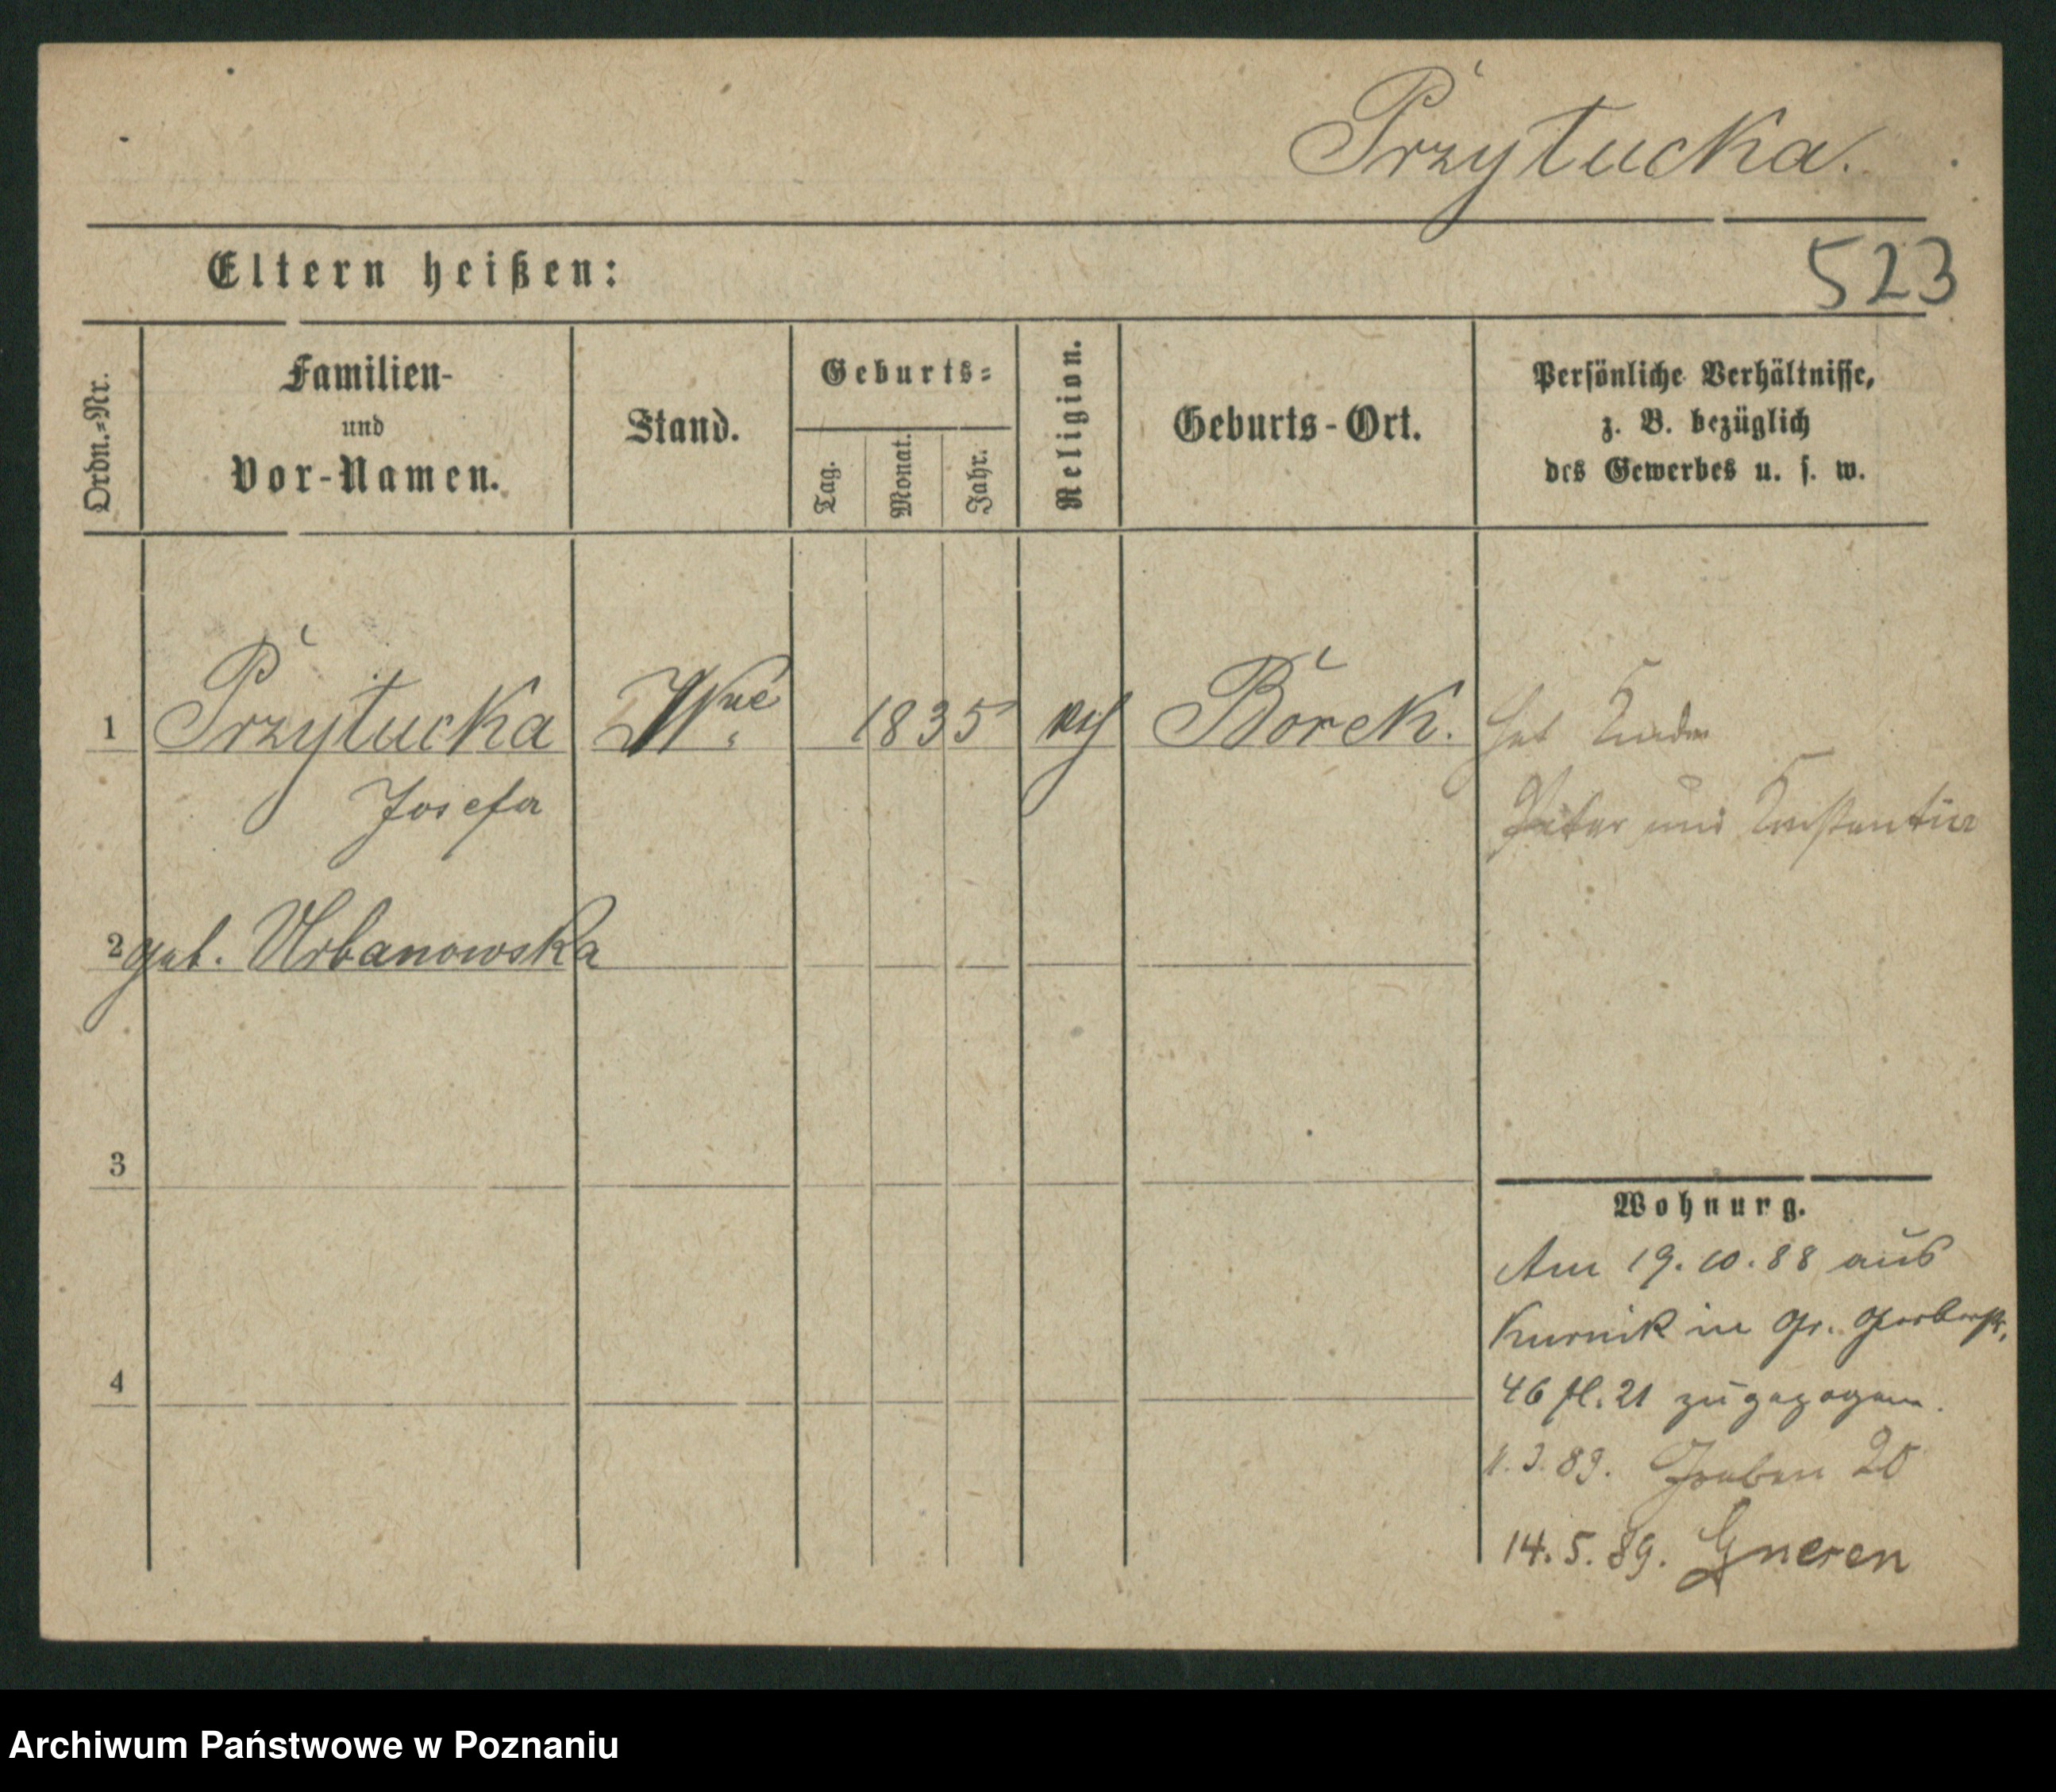 Przytucka.
523
Eltern heißen:
Ordn.=Nr.
Familien-
und
Vor-Namen.
Stand.
Geburts=
Tag.
Monat.
Jahr.
Religion.
Geburts-Ort.
Persönliche Verhältnisse,
z. B. bezüglich
des Gewerbes u. s. w.
1 Przytucka Wwe 1835 Borek. hat Kinder
Josefa
Peter und Constantia
2 geb. Urbanowska
3
4
Wohnung.
Am 19.10.88 aus
Kurnik in Gr. Gerberstr.
46 fl. 21 zugezogen.
.3.89. Graben 20
14.5.89. Gnesen
Archiwum Państwowe w Poznaniu